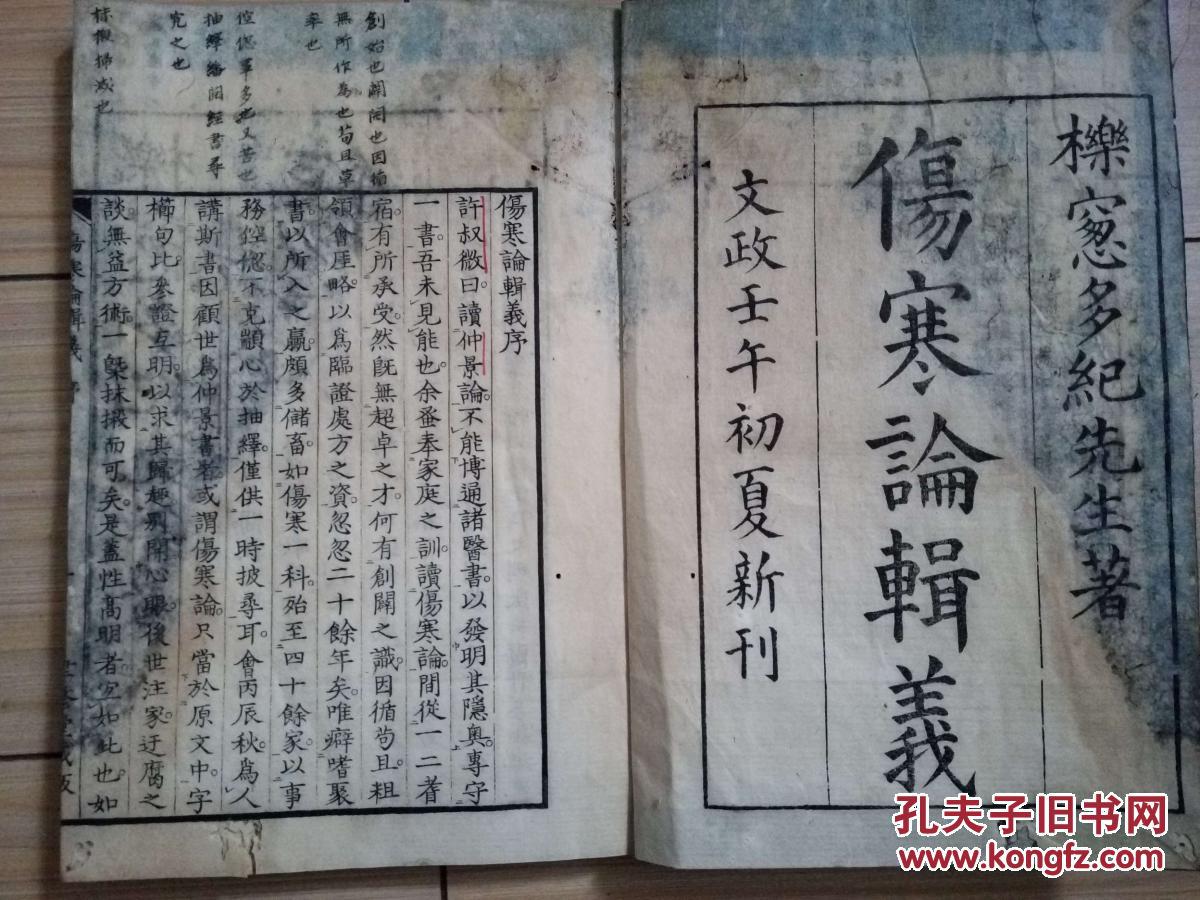 櫟窻多紀先生著
傷寒論輯義
文政壬午初夏新刊
傷寒論輯義序
許叔微曰。讀仲景論。不能博通諸醫書。以發明其隱奧。專守
一書。吾未見能也。余蚤奉家庭之訓。讀傷寒論。間從一二耆
宿。有所承受。然旣無超卓之才。何有創闢之識。因循苟且。粗
領會厓略。以爲臨證處方之資。忽忽二十餘年矣。唯癖嗜聚
書。以所入之贏。頗多儲畜。如傷寒一科。殆至四十餘家。以事
務倥偬。不克顓心於抽繹。僅供一時披尋耳。會丙辰秋。爲人
講斯書。因顧世爲仲景書者。或謂傷寒論。只當於原文中。字
櫛句比。參證互明。以求其歸趣。別開心眼。後世注家。迂腐之
談。無益方術。一槩抹摋而可矣。是蓋性高明者。宜如此也。如
傷寒論輯義 序 一
創始也闢開也因循
無所作爲也苟且草
率也
倥偬事多也又苦也
抽繹繙閱經書尋
究之也
抹摋掃滅也
孔夫子旧书网
www.kongfz.com